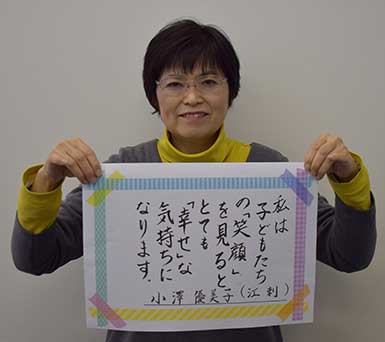 私は
子どもたち
の「笑顔」
を見ると、
とても
「幸せ」な
気持ちに
なります。
小澤優美子(江刺)